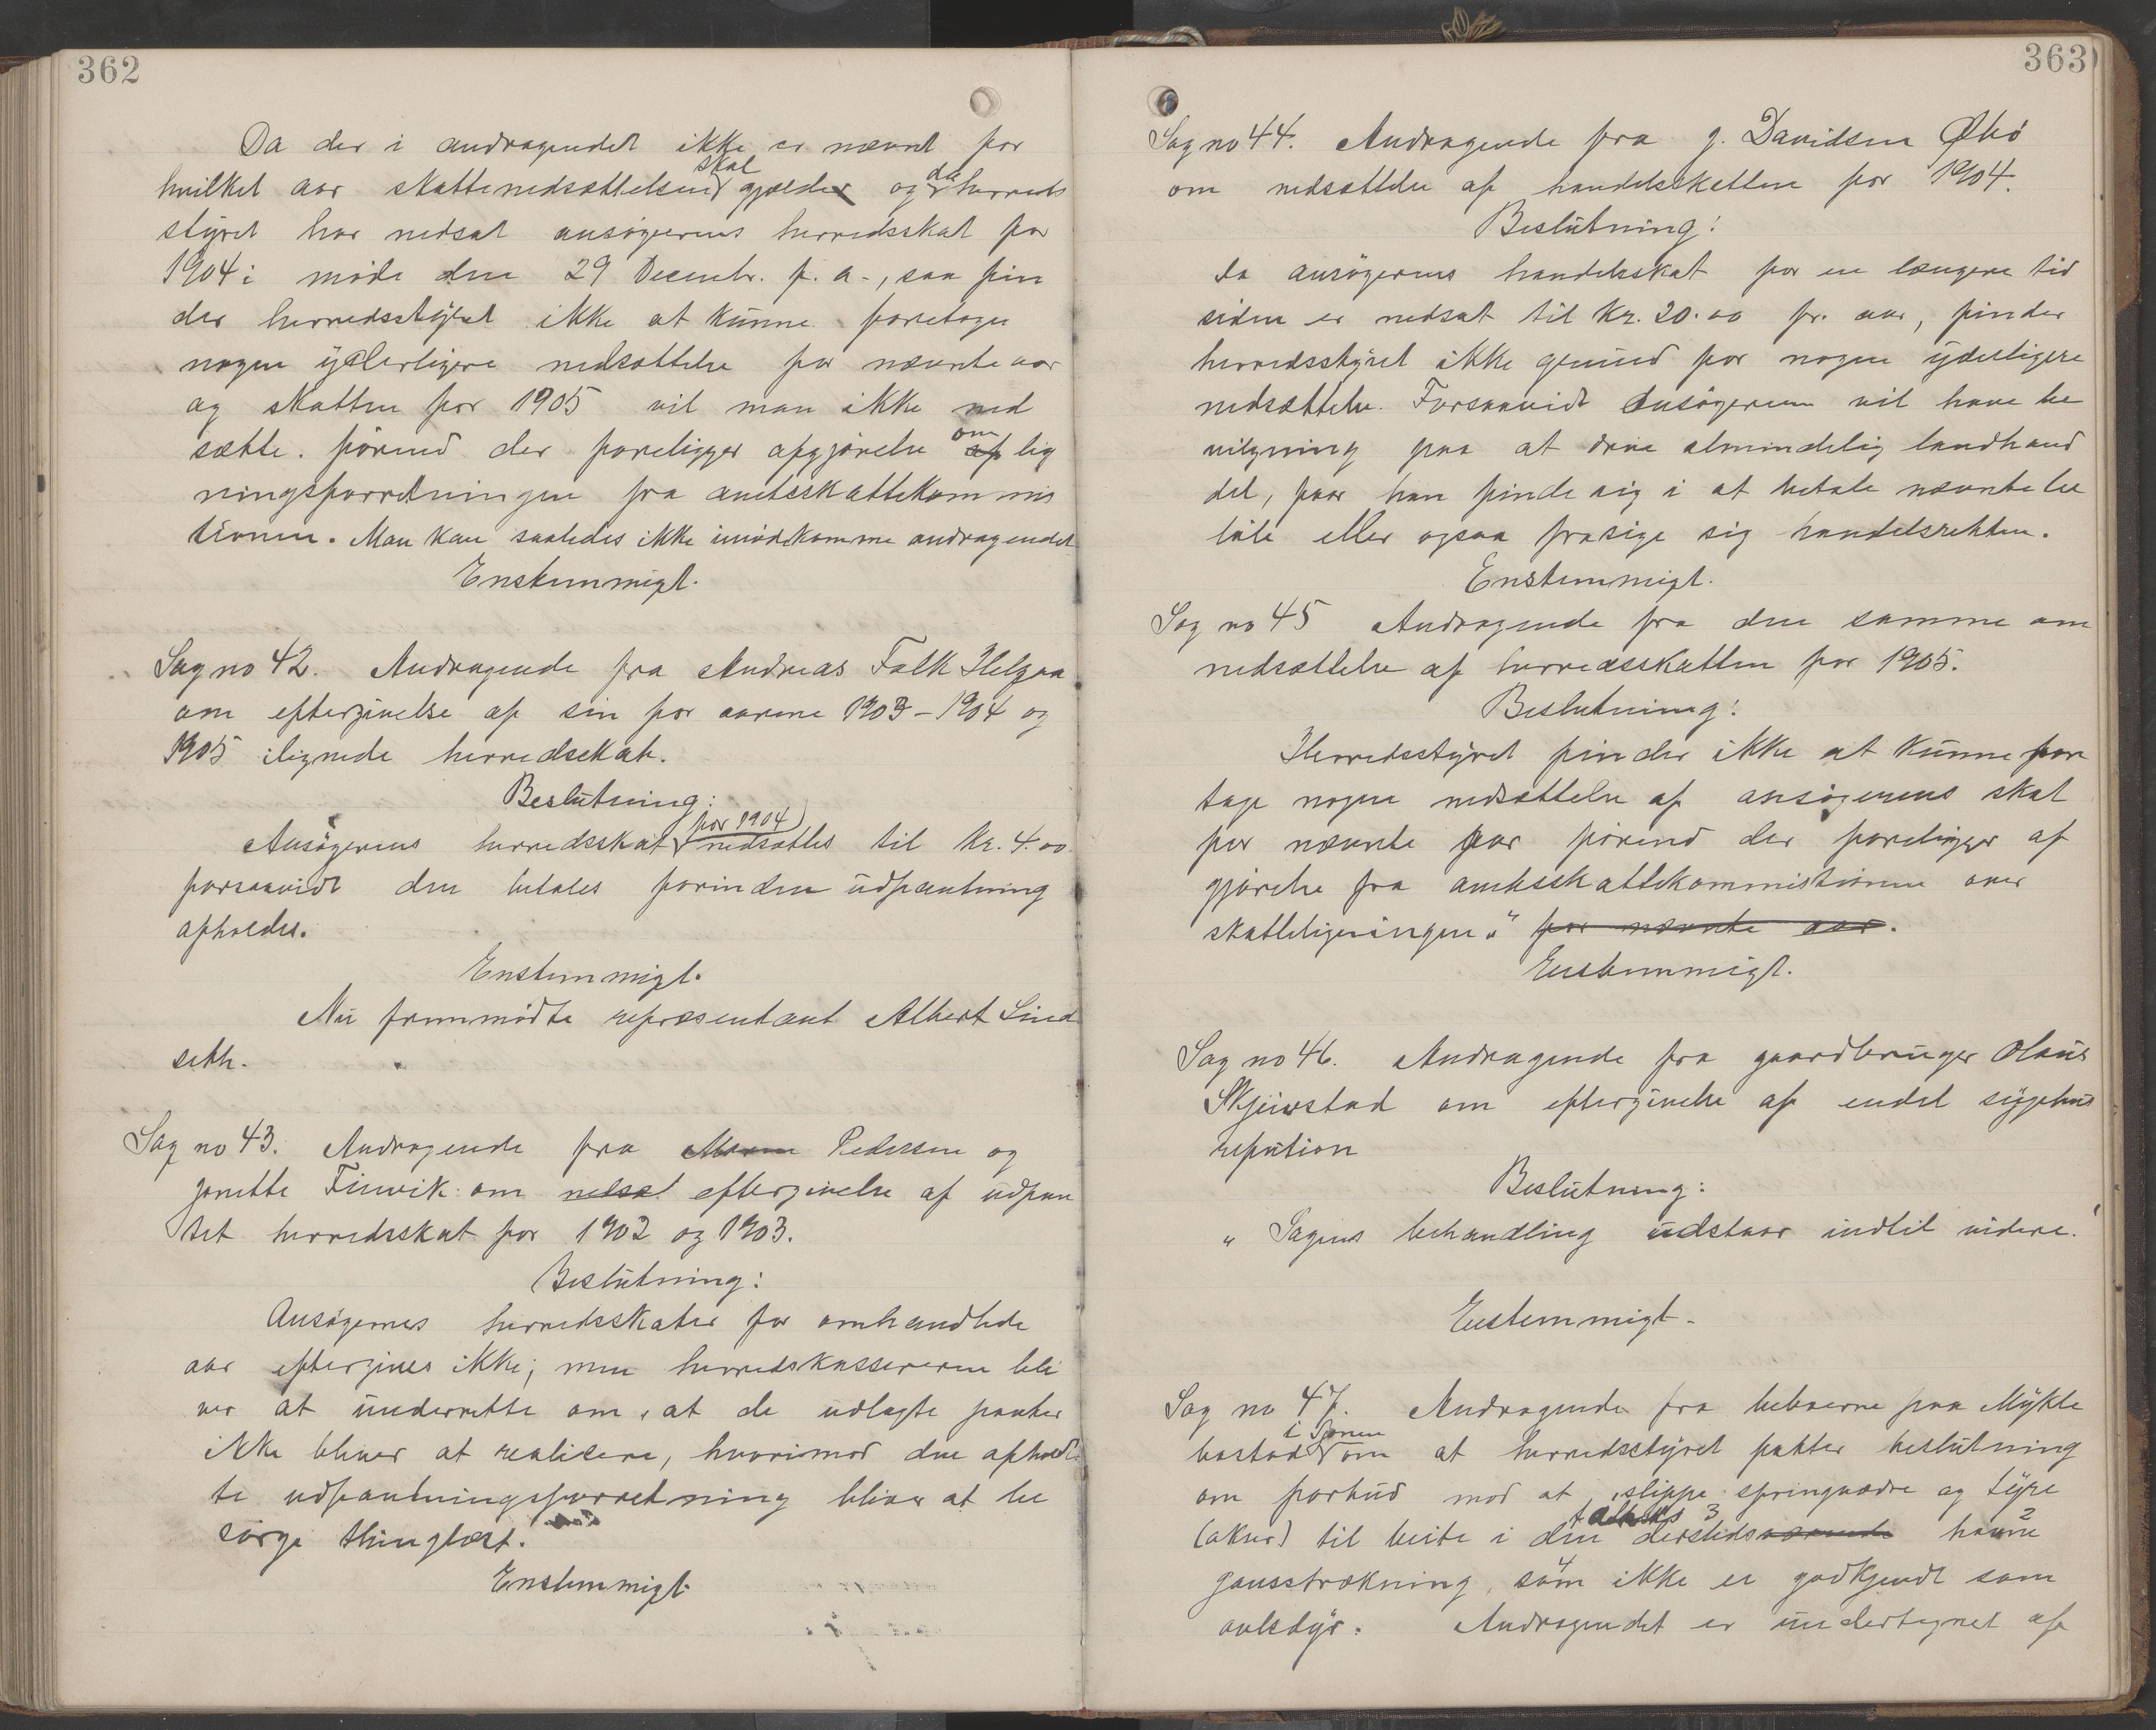 362
Da der i andragendet ikke er nævnt for
hvilket aar skattenedsættelsen skal gjælde og da herreds
styret har nedsat ansøgerens herredsskat for
1904 i møde den 29 Decembr. f. a-, saa fin
der herredsstyret ikke at kunne foretage
nogen yderligere nedsættelse for nævnte aar
og skatten for 1905 vil man ikke ned
sætte. førend der foreligger afgjørelse om af lig
ningsforretningen fra amtsskattekommis
tionen. Man kan saaledes ikke imødekomme andragendet
Enstemmigt.
Sag no 42. Andragende fra Andreas Falk Helgaa
om eftergivelse af sin for aarene 1903-1904 og
1905 ilignede herredsskat.
Beslutning:
Ansøgerens herredsskat for 1904 nedsættes til Kr. 4.00
forsaavidt den betales forinden udpantning
afholdes.
Enstemmigt.
Nu fremmødte repræsentant Albert Sind
seth.
Sag no 43. Andragende fra Pedersen og
Janette Finvik om nedsat eftergivelse af udpan
tet herredsskat for 1902 og 1903.
Beslutning:
Ansøgernes herredsskater for omhandlede
aar eftergives ikke; men herredskassereren bli
ver at underrette om, at de udlagte panter
ikke bliver at realisere, hvorimod den afholdt
te udpantningsforretning bliver at be
sørge thinglæst.
Enstemmigt
363
Sag no 44. Andragende fra J. Davidsen Økø
om nedsættelse af handelsskatten for 1904.
Beslutning:
Da ansøgerens handelsskat for en længere tid
siden er nedsat til Kr. 20.00 pr. aar, finder
herredsstyret ikke grund for nogen yderligere
nedsættelse. Forsaavidt Ansøgeren vil have be
vilgning paa at drive almindelig landhand
del, faar han finde sig i at betale nævnte be
løb eller ogsaa frasige sig handelsretten.
Enstemmigt.
Sag no 45 Andragende fra den samme om
nedsættelse af herredsskatten for 1905.
Beslutning:
Herredsstyret finder ikke at kunne fore
tage nogen nedsættelse af ansøgerens skat
for nævnte aar førend der foreligger af
gjørelse fra amtsskattekommistionen over
skatteligningen." for nævnte aar.
Enstemmigt.
Sag no 46. Andragende fra gaardbruger Olaus
Skjeirstad om eftergivelse af endel sygehus
refution
Beslutning:
" Sagens behandling udstaar indtil videre."
Enstemmigt-
Sag no 47. Andragende fra beboerne paa Mykle
bostad i om at herredsstyret fatter beslutning
om forbud mod at slippe springvædre og tyre
(okser) til beite i den derstedsværende havne
gansstrækning, som ikke er godkjendt som
avlsdyr. Andragendet er undertegnet af